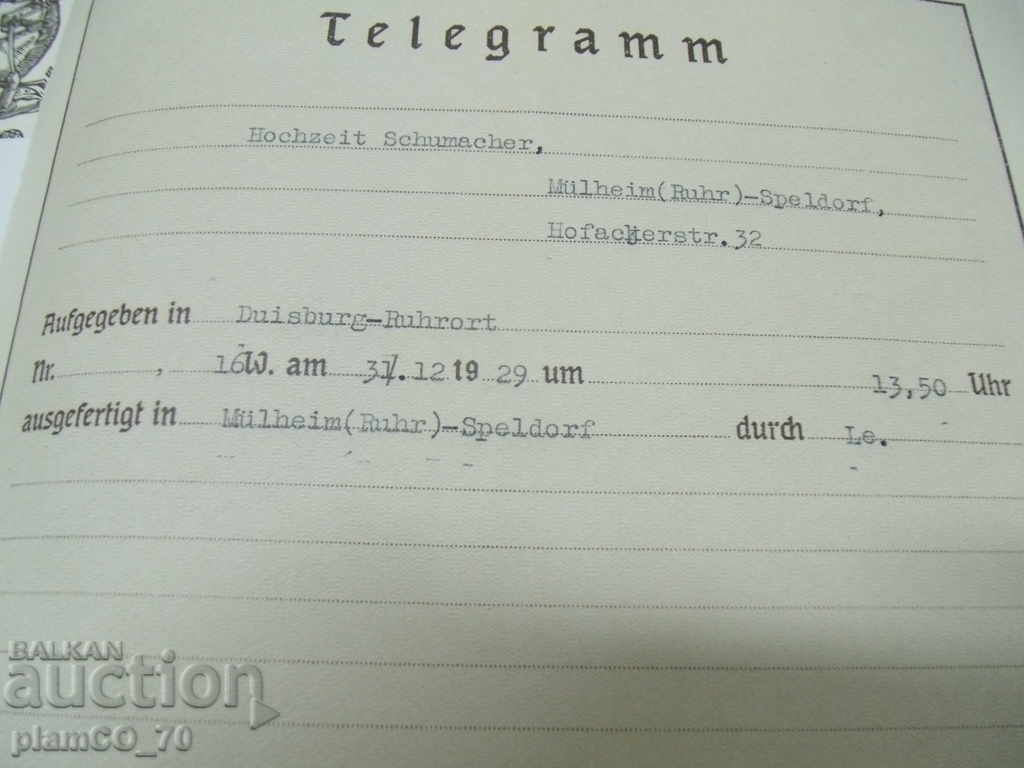 Telegramm
Hochzeit Schumacher,
Mülheim(Ruhr)-Speldorf,
Hofackerstr.32
Aufgegeben in Duisburg-Ruhrort
Nr. , 16 W. am 31.12 19 29 um 13,50 Uhr
ausgefertigt in Mülheim(Ruhr)-Speldorf durch Le.
BALKAN
auction
plamCO_70